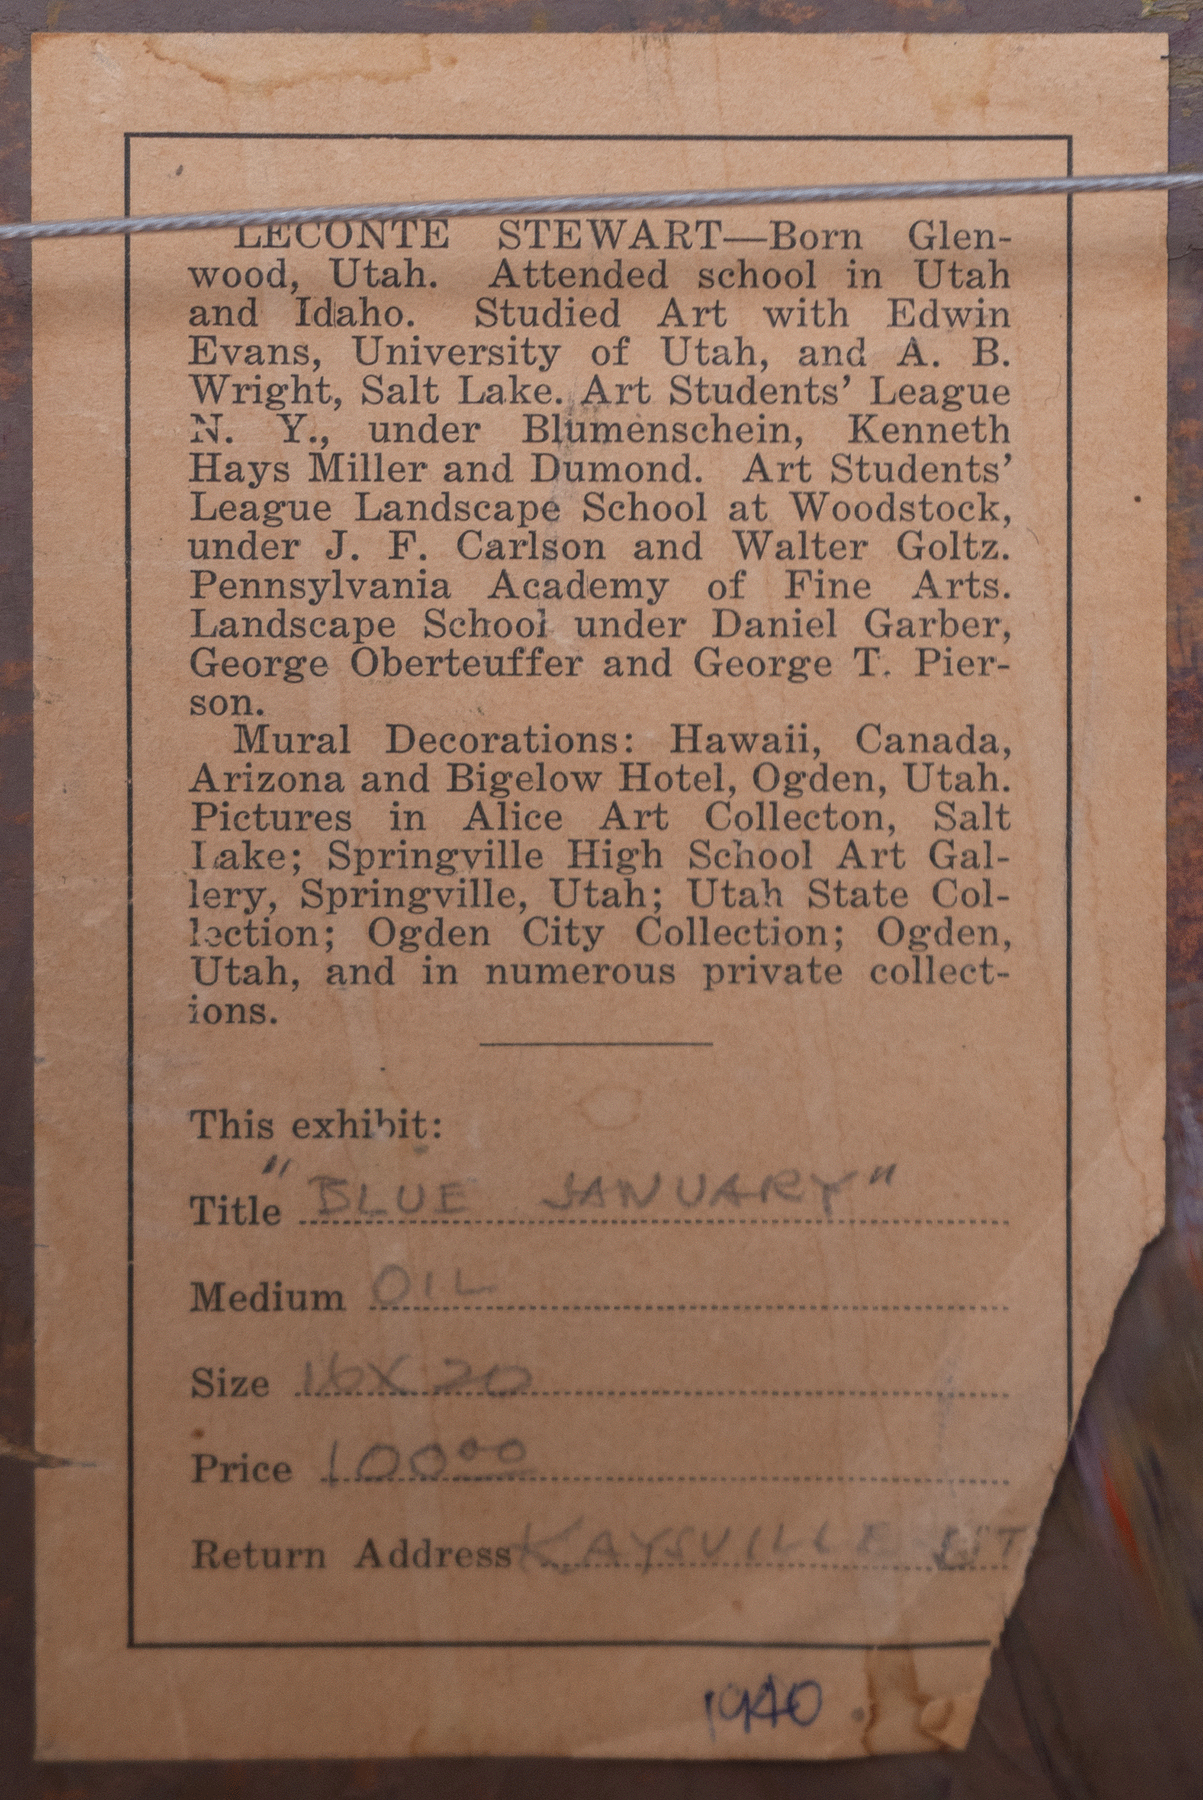 LECONTE STEWART—Born Glen-
wood, Utah. Attended school in Utah
and Idaho. Studied Art with Edwin
Evans, University of Utah, and A. B.
Wright, Salt Lake. Art Students’ League
N. Y., under Blumenschein, Kenneth
Hays Miller and Dumond. Art Students’
League Landscape School at Woodstock,
under J. F. Carlson and Walter Goltz.
Pennsylvania Academy of Fine Arts.
Landscape School under Daniel Garber,
George Oberteuffer and George T. Pier-
son.
Mural Decorations: Hawaii, Canada,
Arizona and Bigelow Hotel, Ogden, Utah.
Pictures in Alice Art Collecton, Salt
Lake; Springville High School Art Gal-
lery, Springville, Utah; Utah State Col-
lection; Ogden City Collection; Ogden,
Utah, and in numerous private collect-
ions.
This exhibit:
Title "BLUE JANUARY"
Medium OIL
Size 16X20
Price 100⁰⁰
Return Address KAYSVILLE UT
1940